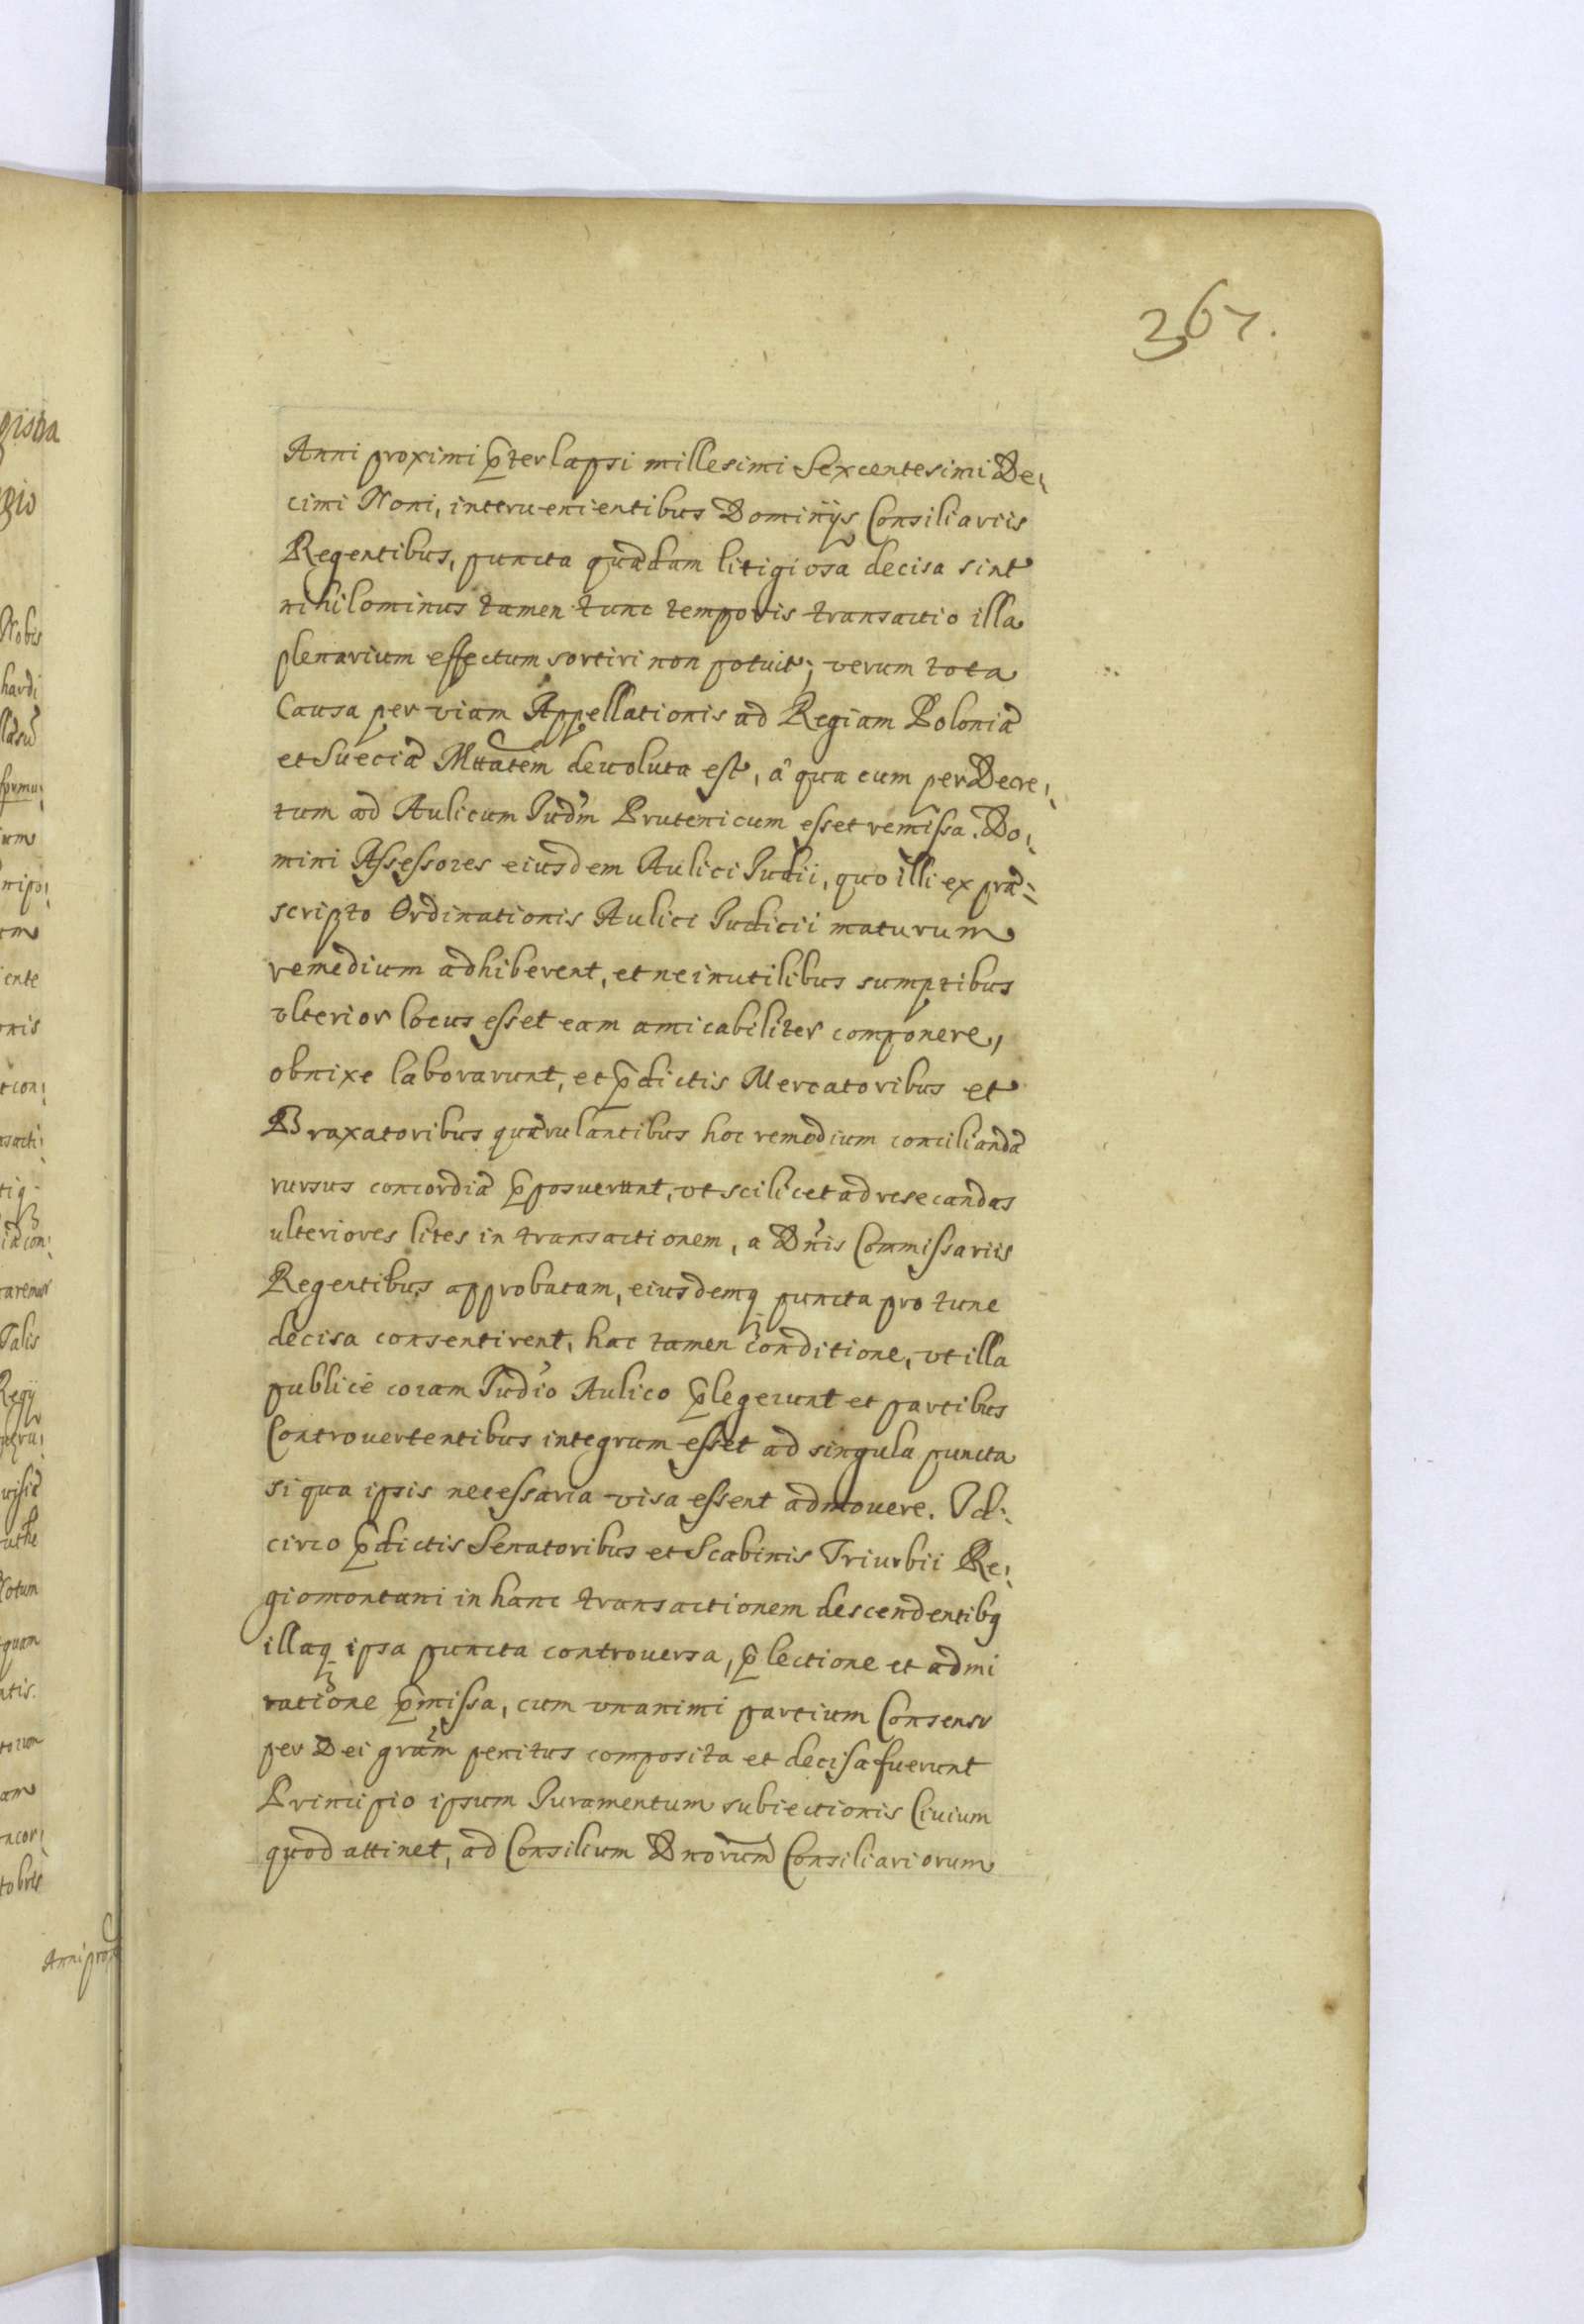 367.
Anni proximi p̄terlapsi millesimi Sexcentesimi De¡
cimi Noni, interuenientibus Dominijs Consiliariis
Regentibus, puncta quædam litigiosa decisa sint
nihilominus tamen tunc temporis transactio illa
plenarium effectum sortiri non potuit; verum tota
Causa per viam Appellationis ad Regiam Poloniæ
et Sueciæ Mttatem deuoluta est, â qua cum per Decre¡
tum ad Aulicum Iudm̃ Prutenicum esset remissa. Do¡
mini Assessores eiusdem Aulici Iudii, quo illi ex præ¡
scripto Ordinationis Aulici Iudicii maturum
remedium adhiberent, et ne inutilibus sumptibus
vlterior locus esset eam amicabiliter componere,
obnixe laborarunt, et p̄dictis Mercatoribus et
Braxatoribus quærulantibus hoc remedium conciliandæ
rursus concordiæ p̄posuerunt, vt scilicet ad resecandas
ulteriores lites in transactionem, a Dnis Commissariis
Regentibus approbatam, eiusdemq puncta pro tunc
decisa consentirent, hac tamen conditione, vt illa
publicè coram Iudio Aulico p̄legerunt et partibus
Controuertentibus integrum esset ad singula puncta
si qua ipsis necessaria visa essent admouere. Id¡
circo p̄dictis Senatoribus et Scabinis Triurbii Re¡
giomontani in hanc transactionem descendentibq
illaq ipsa puncta controuersa, p̄lectione et admi
ratione p̄missa, cum vnanimi partium Consensu
per Dei gram̃ penitus composita et decisa fuerunt
Principio ipsum Iuramentum subiectionis Ciuium
quod attinet, ad Consilium Dnorum Consiliariorum